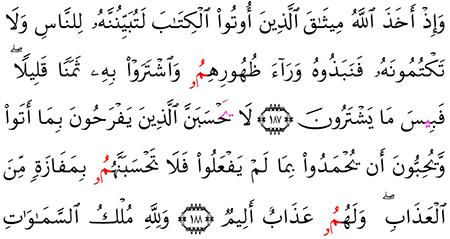 وَإِذْ أَخَذَ ٱللَّهُ مِيثَٰقَ ٱلَّذِينَ أُوتُوا۟ ٱلْكِتَٰبَ لَتُبَيِّنُنَّهُۥ لِلنَّاسِ وَلَا
تَكْتُمُونَهُۥ فَنَبَذُوهُ وَرَآءَ ظُهُورِهِمُۥ وَٱشْتَرَوْا۟ بِهِۦ ثَمَنًا قَلِيلًاۖ
فَبِيسَ مَا يَشْتَرُونَ ١٨٧ لَا يَحْسَبَنَّ ٱلَّذِينَ يَفْرَحُونَ بِمَا أَتَوا۟
وَّيُحِبُّونَ أَن يُحْمَدُوا۟ بِمَا لَمْ يَفْعَلُوا۟ فَلَا تَحْسَبَنَّهُمُۥ بِمَفَازَةٍ مِّنَ
ٱلْعَذَابِۖ وَلَهُمُۥ عَذَابٌ أَلِيمٌ ١٨٨ وَلِلَّهِ مُلْكُ ٱلسَّمَٰوَٰتِ